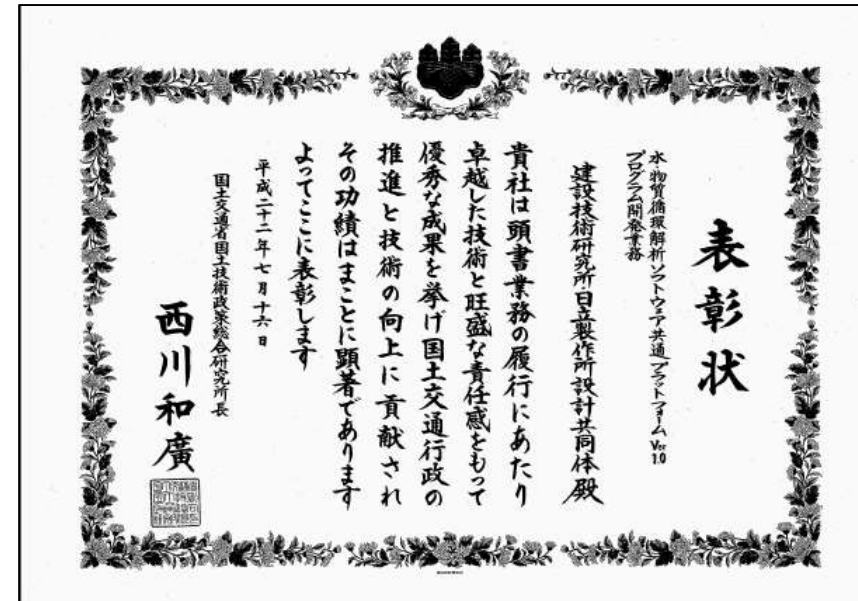 表彰状
水・物質循環解析ソフトウェア共通プラットフォーム Ver 1.0
プログラム開発業務
建設技術研究所・日立製作所設計共同体殿
貴社は頭書業務の履行にあたり
卓越した技術と旺盛な責任感をもって
優秀な成果を挙げ国土交通行政の
推進と技術の向上に貢献され
その功績はまことに顕著であります
よってここに表彰します
平成二十二年七月十六日
国土交通省国土技術政策総合研究所長
西川和廣